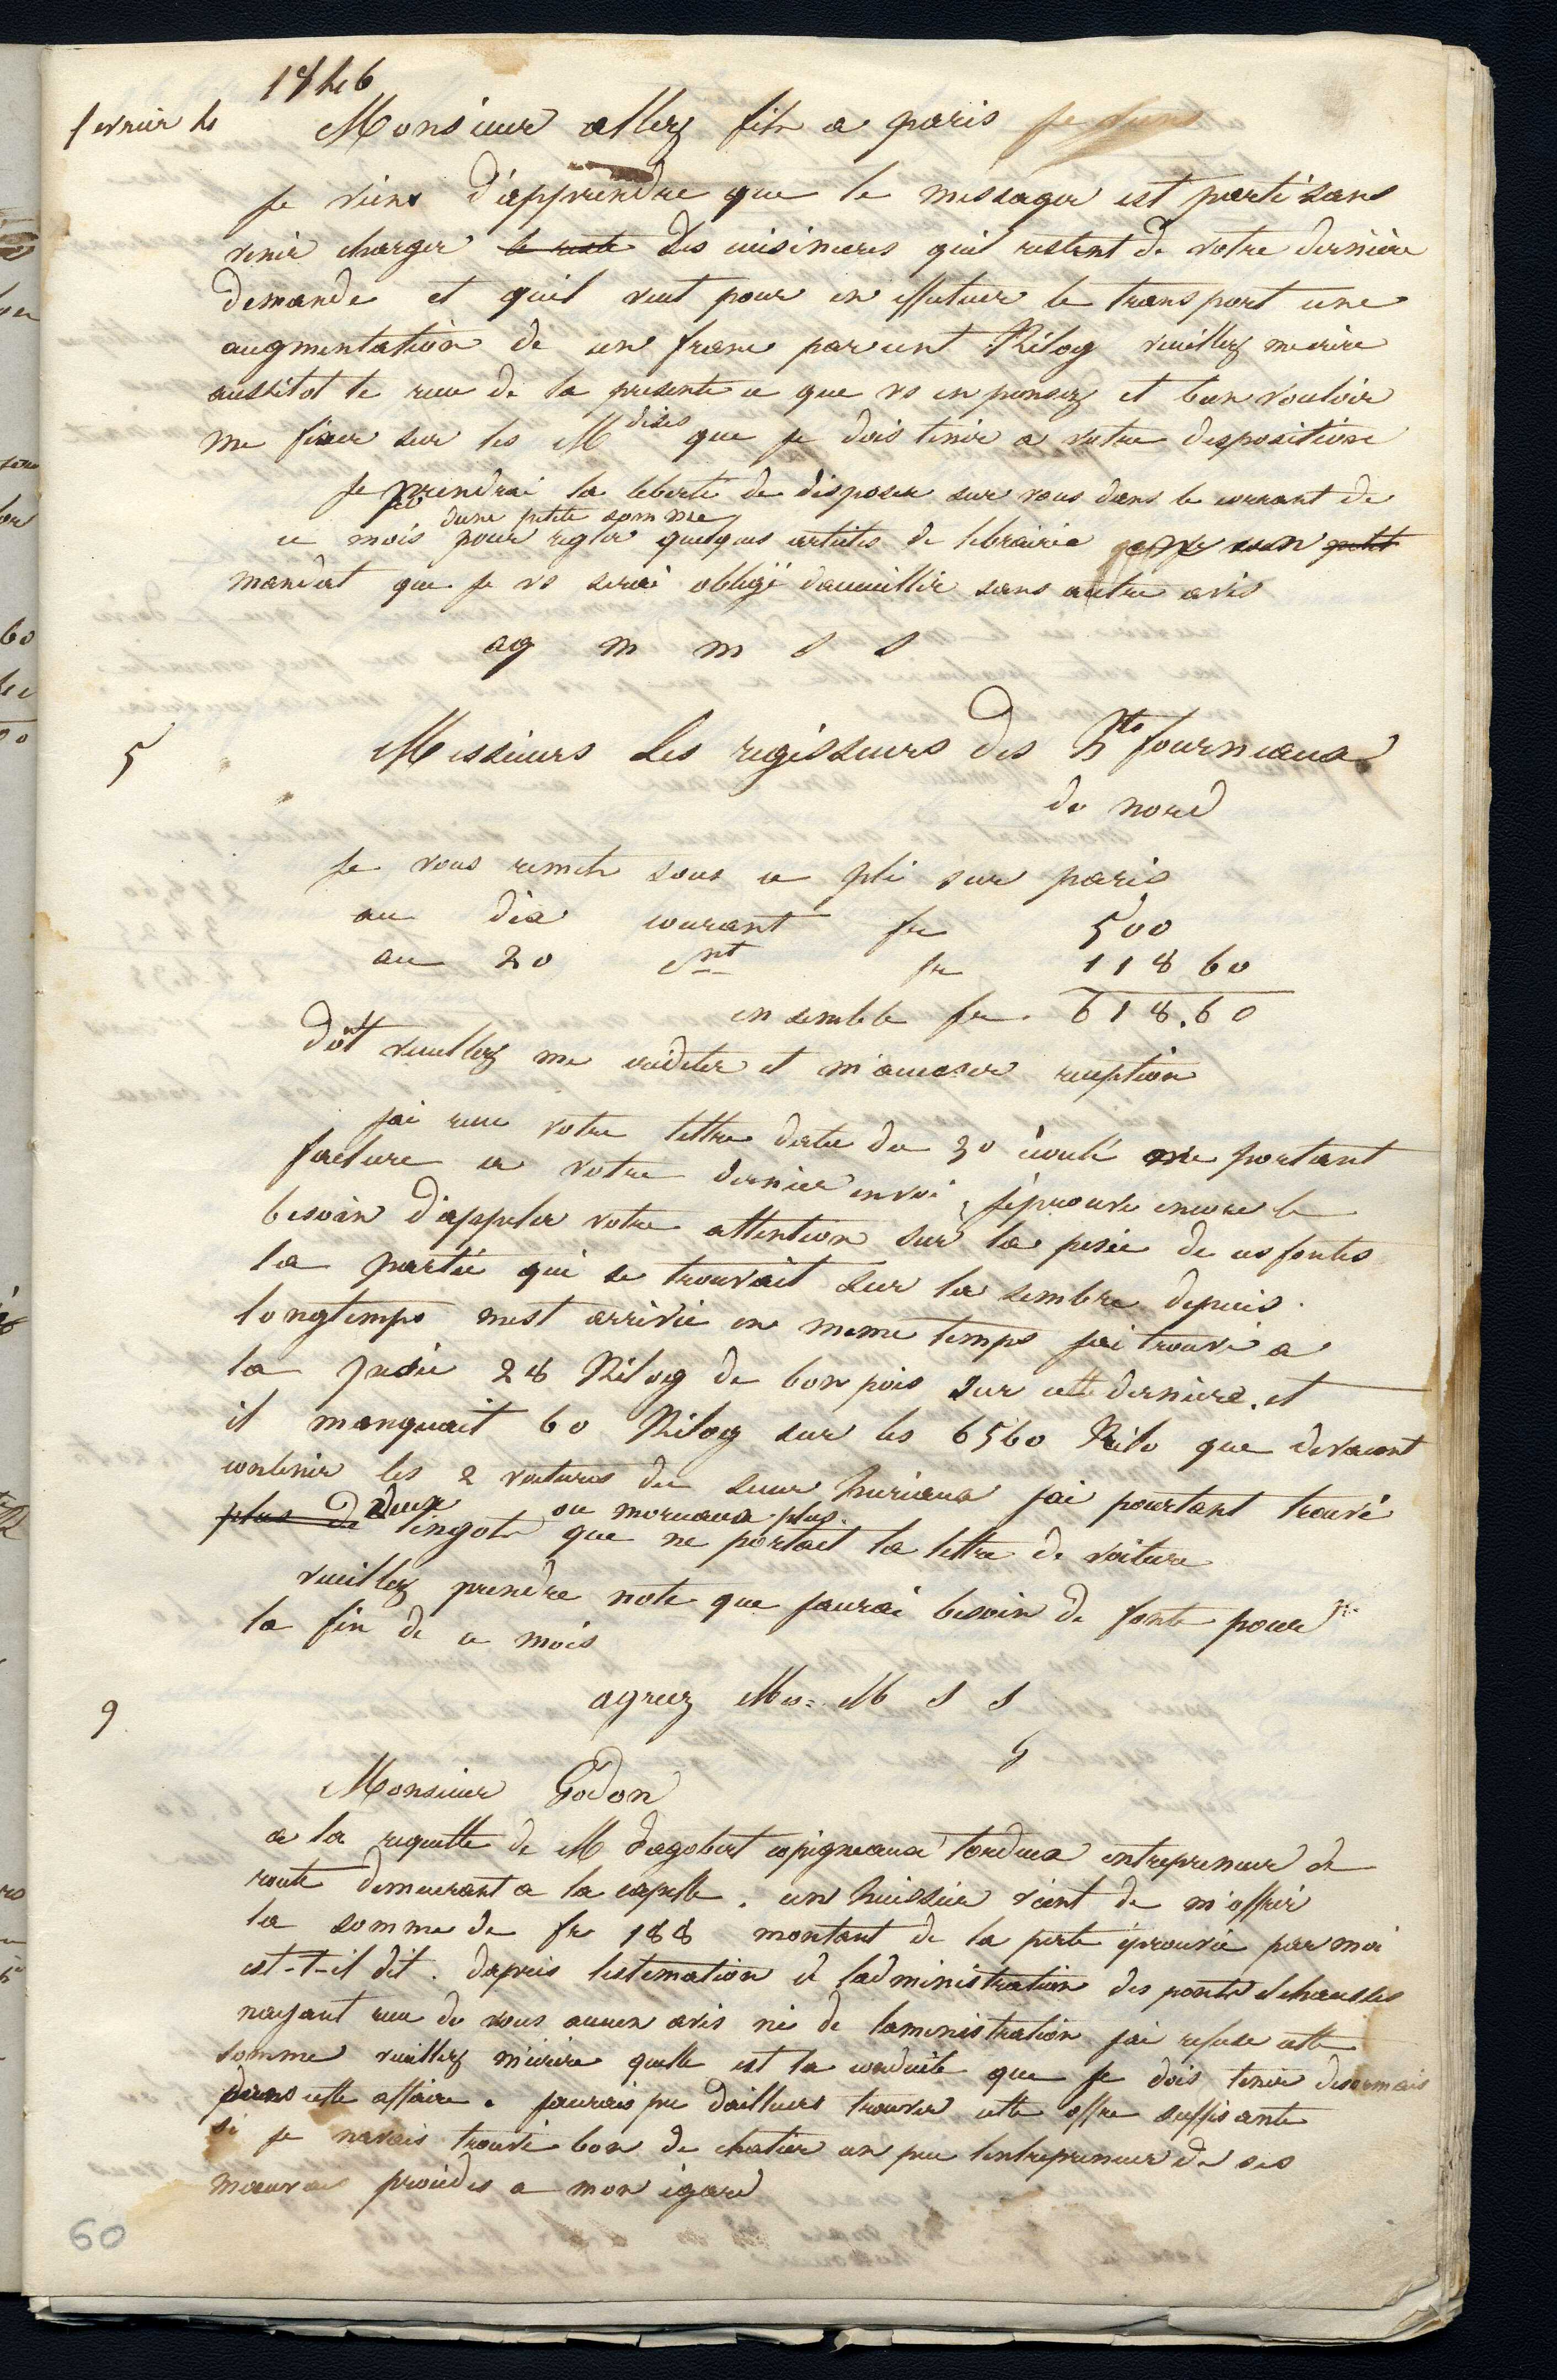 1846
fevrier 4 Monsieur allez fils a paris
Je viens d'apprendre que le messager est parti sans
venir charger le reste des cuisinieres qui restent de votre dernière
demande et quil veut pour en effectuer le transport une
augmentation de un franc par cent Kilog veuillez mecrire
aussitot le recu de la presente ce que vs en pensez et bien vouloir
me fixer sur les M dises que je dois tenir a votre disposition
Je prendrai la liberté de disposer sur vous dans le courant de
dune petite somme
ce mois pour regler quelques articles de librairie petit
mandat que je vs serai obligé daccueillir sans autre avis
ag m m s s
5 Messieurs Les regisseurs des hts fourneaux
du nord
Je vous remets sous ce pli sur paris
au dix courant fr 500
au 20 cnt fr 118 60
ensemble fr. 618.60
dont veuillez me créditer et m'accuser reception
jai recu votre lettre datée du 30 écoulé me portant
facture a votre dernier envoi, j'éprouve encore le
besoin d'appeler votre attention sur la pesée de vos fontes
la partie qui se trouvait sur la sembre depuis
longtemps mest arrivée en meme temps jai trouvé a
la pesée 28 Kilog de bon pois sur cette dernière. et
il manquait 60 Kilog sur les 6560 Kilo que devaient
contenir les 2 voitures du sieur huriaux jai pourtant trouvé
plus de deux lingots ou morceaux plus. que ne portait la lettre de voiture
veuillez prendre note que jaurai besoin de fonte pour
la fin de ce mois
agreez Ms= M s s
G
9
Monsieur Godon
a la requette de M dagobert copigneaux tordeux entrepreneur de
route demeurant a la capelle. un huissier vient de m'offrir
la somme de fr 188 montant de la perte éprouvée par moi
est-t-il dit. dapres lestimation de ladministration des ponts et chaussées
nayant recu de vous aucun avis ni de laministration jai refusé cette
somme veuillez m'écrire quelle est la conduite que je dois tenir desormais
dans cette affaire. jaurais pu dailleurs trouver cette offre suffisante
si je navais trouvé bon de chatier un peu lentrepreneur de ses
mauvais procédés a mon égard
60